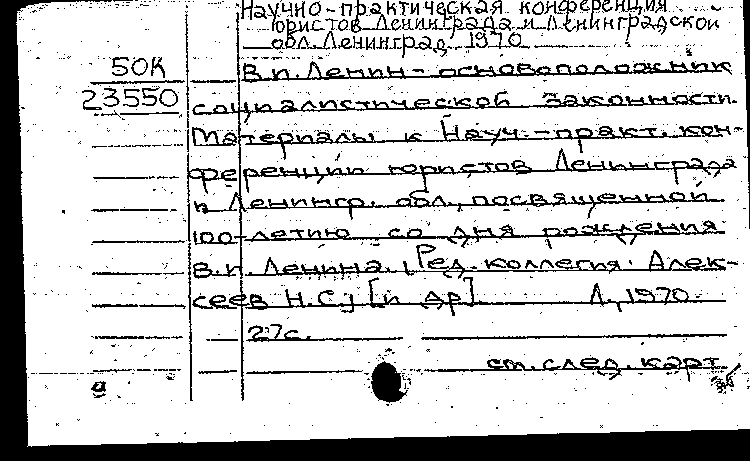 Научно-практическая конференция
юристов Ленинграда и Ленинградской
обл. Ленинград, 1970
50К
23550
В.И. Ленин - основоположник
социалистической законности.
Материалы к Науч.-практ. кон-
ференции юристов Ленинграда
и Ленингр. обл., посвященной
100-летию со дня рождения
В.И. Ленина. [Ред. коллегия: Алек-
сеев Н.С.] [и др]. Л., 1970.
27с.
ст. след. карт.
а